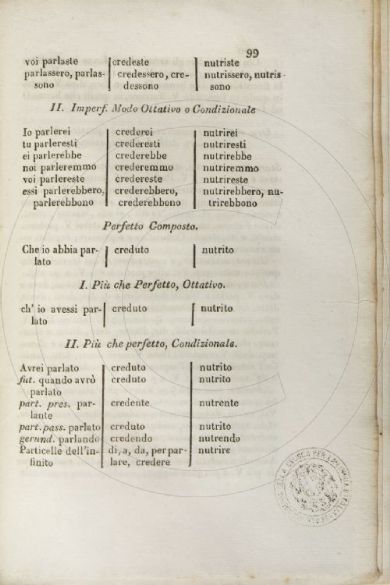 99
voi parlaste credeste nutriste
parlassero, parlas- credessero, cre- nutrissero, nutris-
sono dessono sono
II. Imperf. Modo Ottativo o Condizionale
Io parlerei crederei nutrirei
tu parleresti crederesti nutriresti
ei parlerebbe crederebbe nutrirebbe
noi parleremmo crederemmo nutriremmo
voi parlereste credereste nutrireste
essi parlerebbero, crederebbero, nutrirebbero, nu-
parlerebbono crederebbono trirebbono
Perfetto Composto.
Che io abbia par- creduto nutrito
lato
I. Più che Perfetto, Ottativo.
ch' io avessi par- creduto nutrito
lato
II. Più che perfetto, Condizionale.
Avrei parlato creduto nutrito
fut. quando avrò creduto nutrito
parlato
part. pres. par- credente nutrente
lante
part. pass. parlato creduto nutrito
gerund. parlando credendo nutrendo
Particelle dell'in- di, a, da, per par- nutrire
finito lare, credere